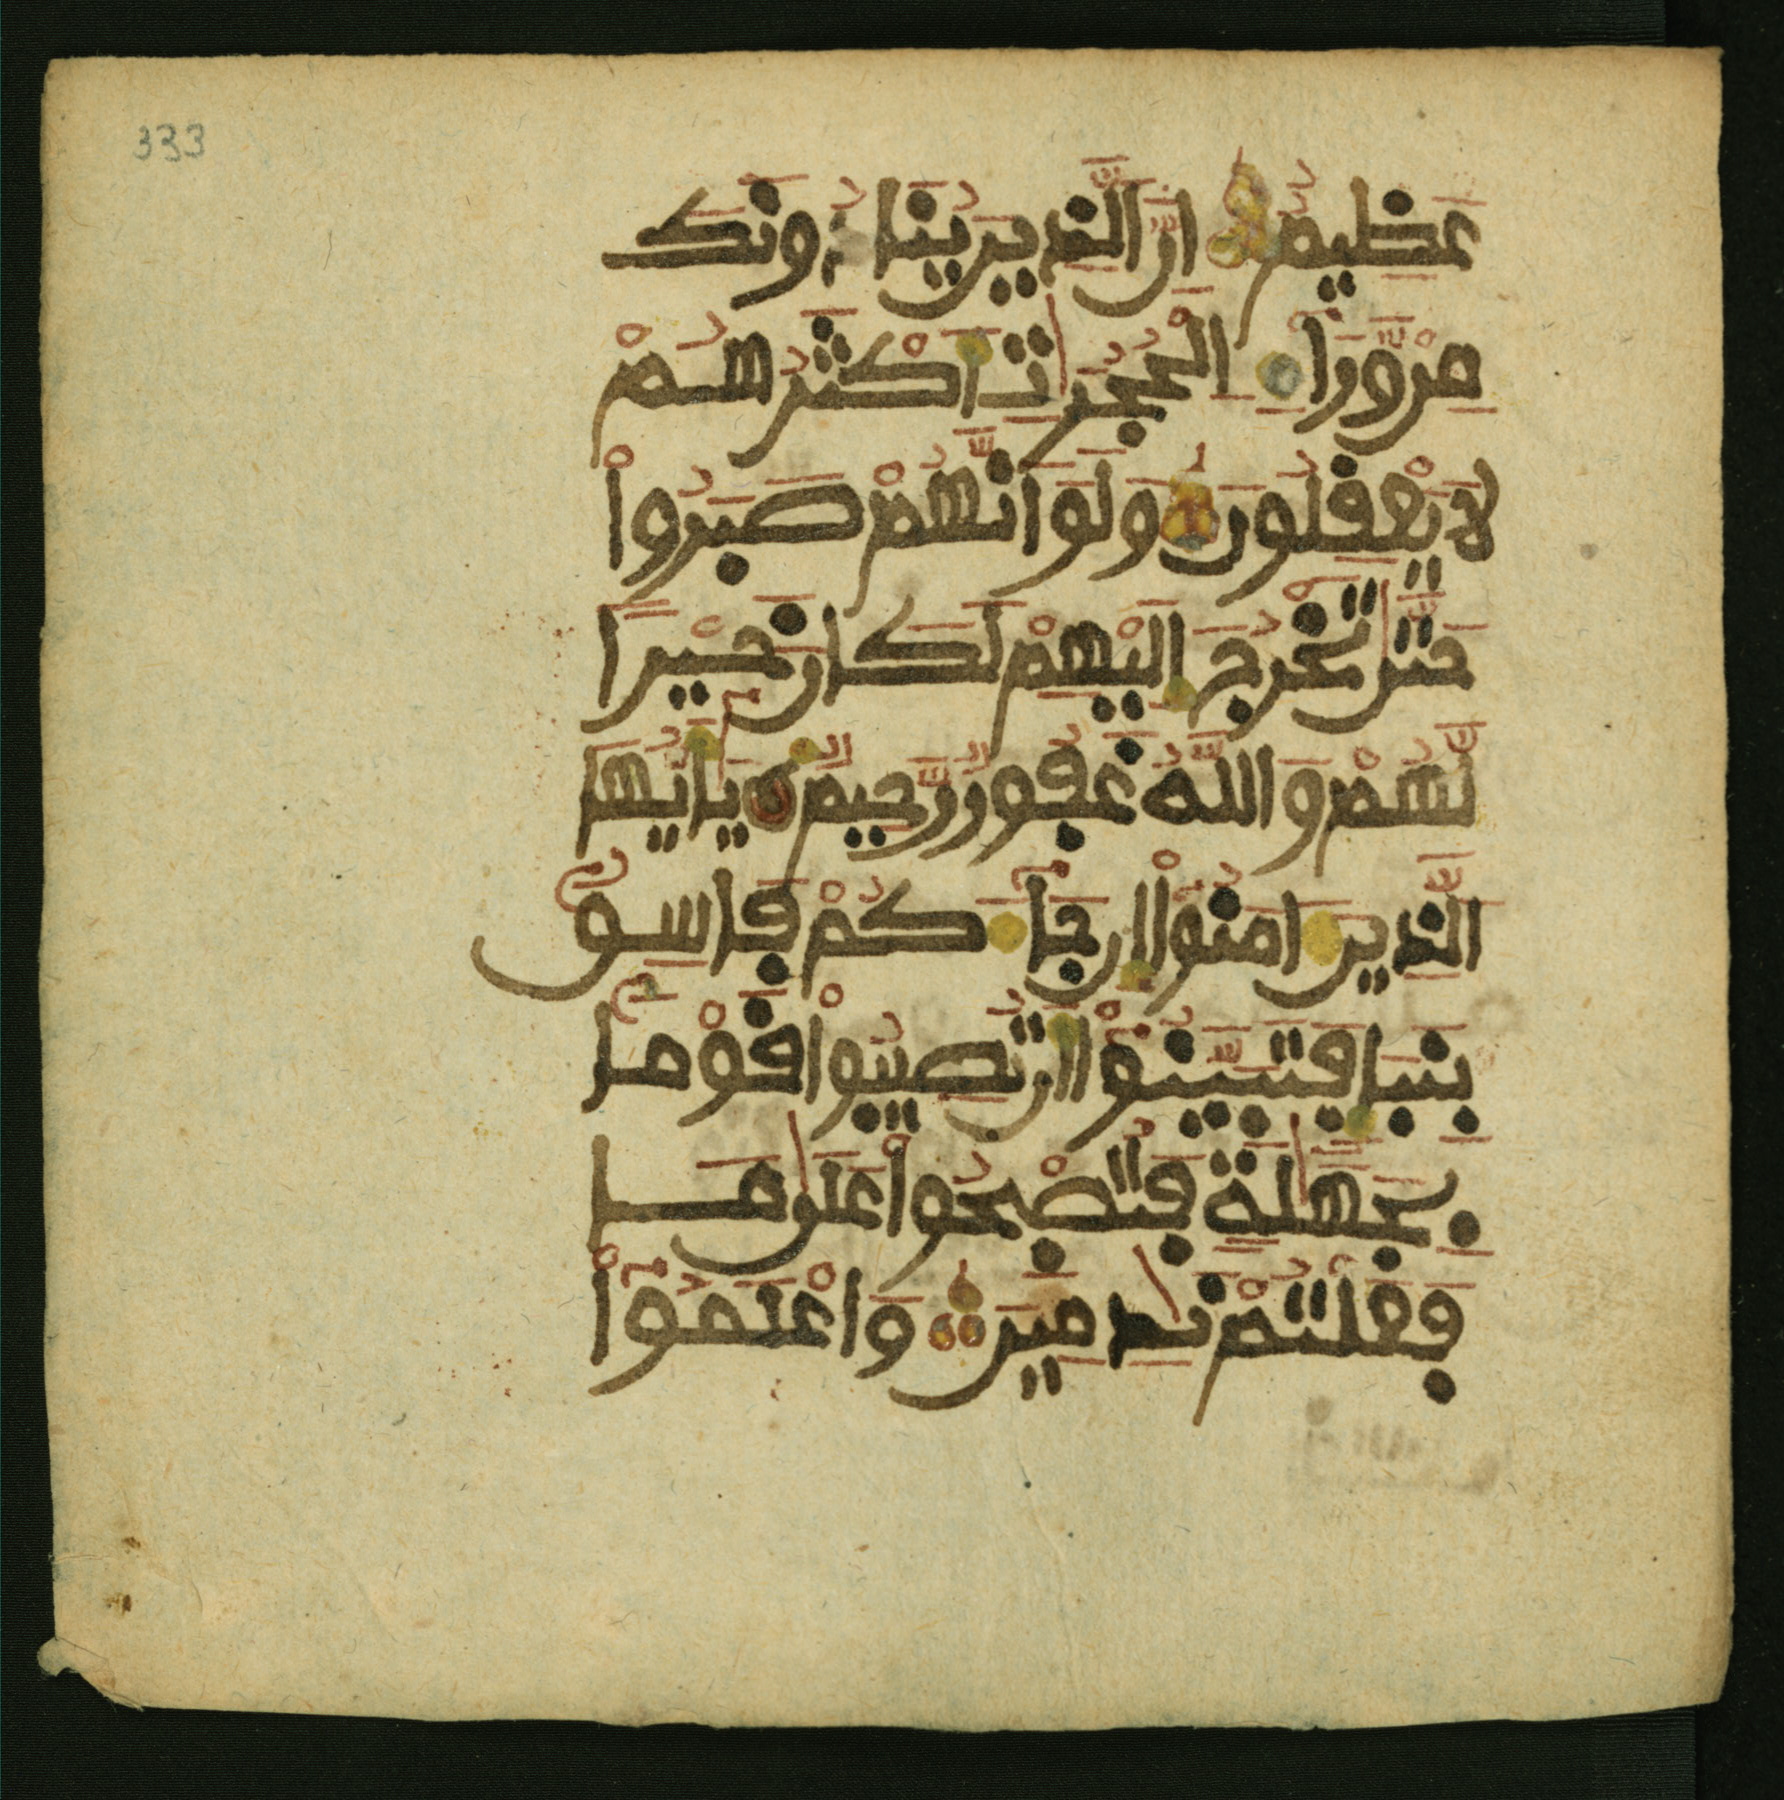 333
عَظِيمٌ اِنَّ الَّذِينَ يُنَادُونَكَ
مِنْ وَّرَآءِ الْحُجُرَاتِ أَكْثَرُهُمْ
لَا يَعْقِلُونَ وَلَوَ اَنَّهُمْ صَبَرُواْ
حَتَّىٰ تَخْرُجَ إِلَيْهِمْ لَكَانَ خَيْرًا
لَّهُمْ وَاللَّهُ غَفُورٌ رَّحِيمٌ يَٰأَيُّهَا
الَّذِينَ ءَامَنُوٓاْ إِن جَآءَكُمْ فَاسِقٌ
بِنَبَإٍ فَتَبَيَّنُوٓاْ أَن تُصِيبُواْ قَوْمًا
بِجَهَٰلَةٍ فَتُصْبِحُواْ عَلَىٰ مَا
فَعَلْتُمْ نَٰدِمِينَ وَاعْلَمُوٓاْ